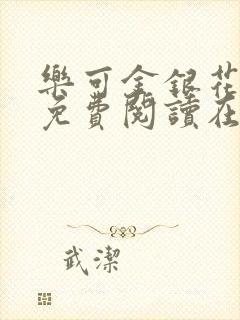 樂可金銀花
免費閱讀在
武潔